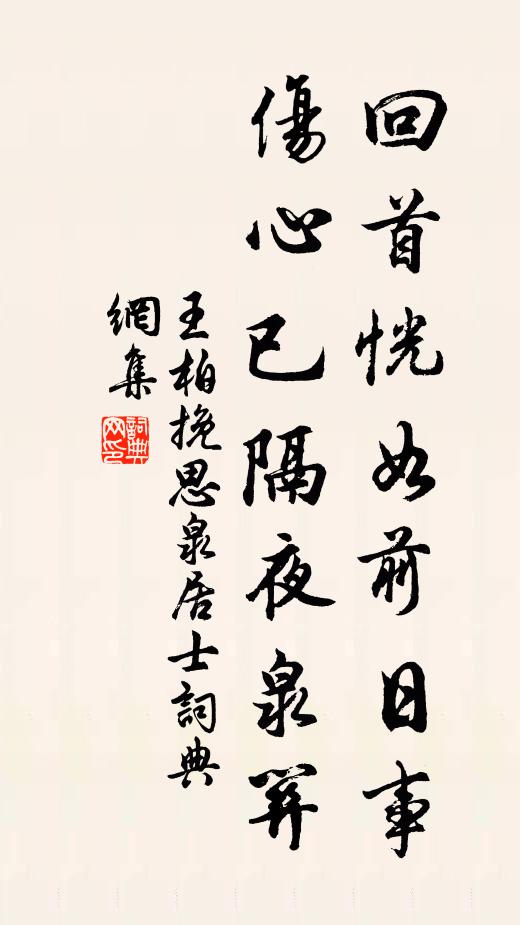 回首恍如前日事
傷心已隔夜泉
王柏挽思泉居士詞典
網集
詞典
网印